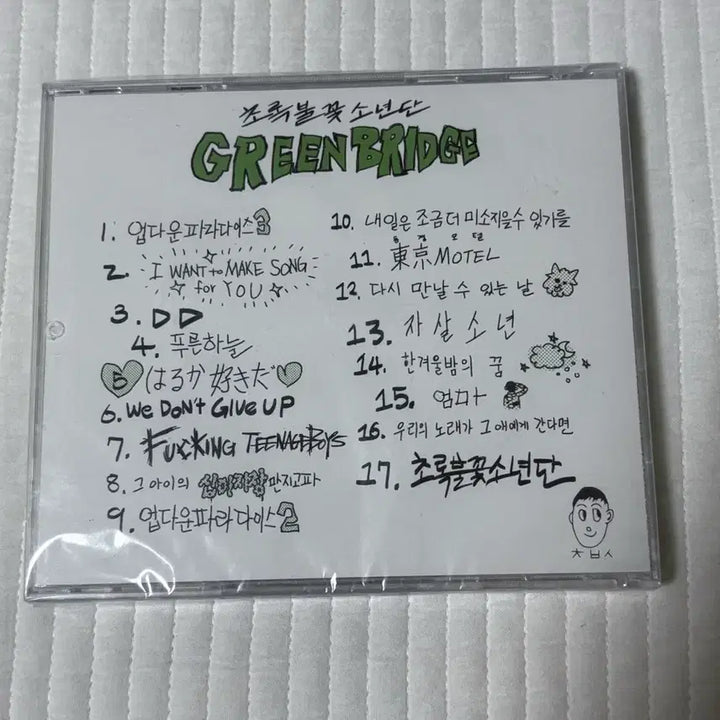 초록불꽃소년단
GREENBRIDGE
1. 업다운파라다이스3
2. I WANT to MAKE SONG
for YOU
3. DD
4. 푸른하늘
5 はるか好きだ
6. WE DON'T GIVE UP
7. FUCKING TEENAGEBOYS
8. 그 아이의 만지고파
9. 업다운파라다이스2
10. 내일은 조금더 미소지을수 있기를
동경 모텔
11. 東京MOTEL
12. 다시 만날 수 있는 날
13. 자살소년
14. 한겨울밤의 꿈
15. 엄마
16. 우리의 노래가 그 애에게 간다면
17. 초록불꽃소년단
ㅊㅂㅅ